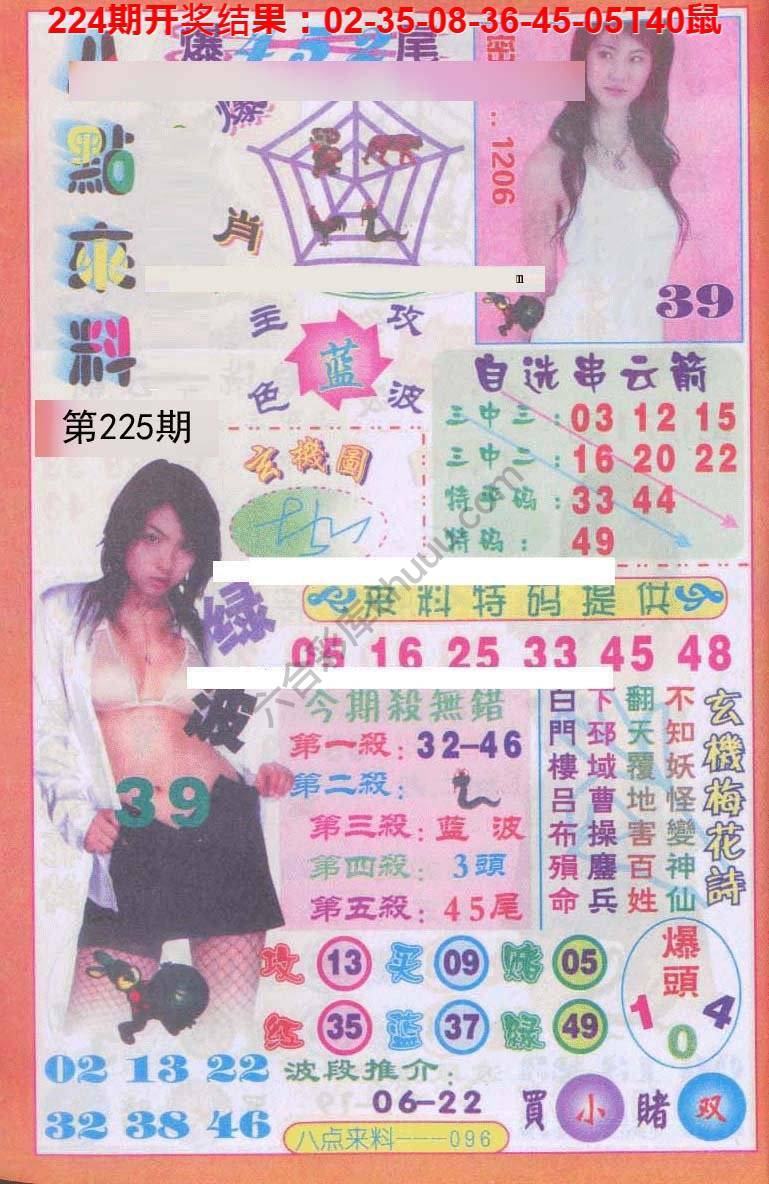 224期开奖结果：02-35-08-36-45-05T40鼠
八點來料
爆 452 尾
爆
肖
1206
39
主攻
蓝
色波
第225期
自选串云箭
三中三：03 12 15
三中二：16 20 22
特平码：33 44
特码：49
玄機圖
来料特码提供
05 16 25 33 45 48
绿波
39
今期殺無錯
第一殺：32-46
第二殺：
第三殺：蓝波
第四殺：3頭
第五殺：45尾
玄機梅花詩
不知妖怪變神仙
翻天覆地害百姓
下邳域曹操鏖兵
白門樓吕布殞命
攻 13 买 09 赌 05
红 35 蓝 37 绿 49
爆頭
1 0 4
02 13 22
32 38 46
波段推介：
06-22
買小賭双
八点来料---096
六合彩库4huuu.com